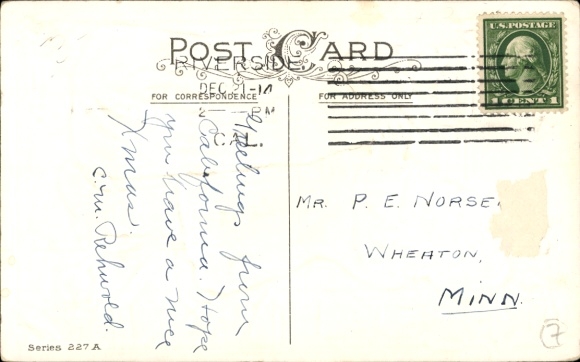 POST CARD
RIVERSIDE,
DEC 21
PM
CAL.
FOR CORRESPONDENCE
FOR ADDRESS ONLY
U.S. POSTAGE
1 CENT 1
Greetings from
California. Hope
you have a nice
Xmas.
C.M. Rehwold.
Mr. P. E. NORSE
WHEATON,
MINN.
Series 227 A
7